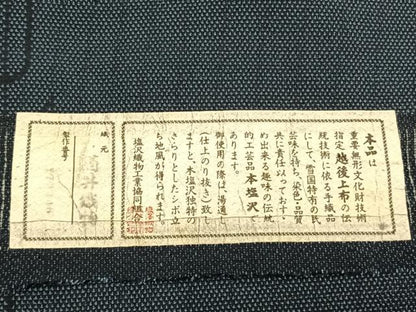 本品は
重要無形文化財技術
指定越後上布の伝
統技術に依る手織品
にして、雪国特有の民
芸味を持ち、染色・品質
共に責任以っておすゝ
め出来る趣味の伝統
的工芸品本塩沢で
あります。
御使用の際は、湯通し
(仕上のり抜き)致し
ますと、本塩沢独特の
さらりとしたシボ立
ち地風が得られます。
塩沢織物工業協同組合
織元
製作番号